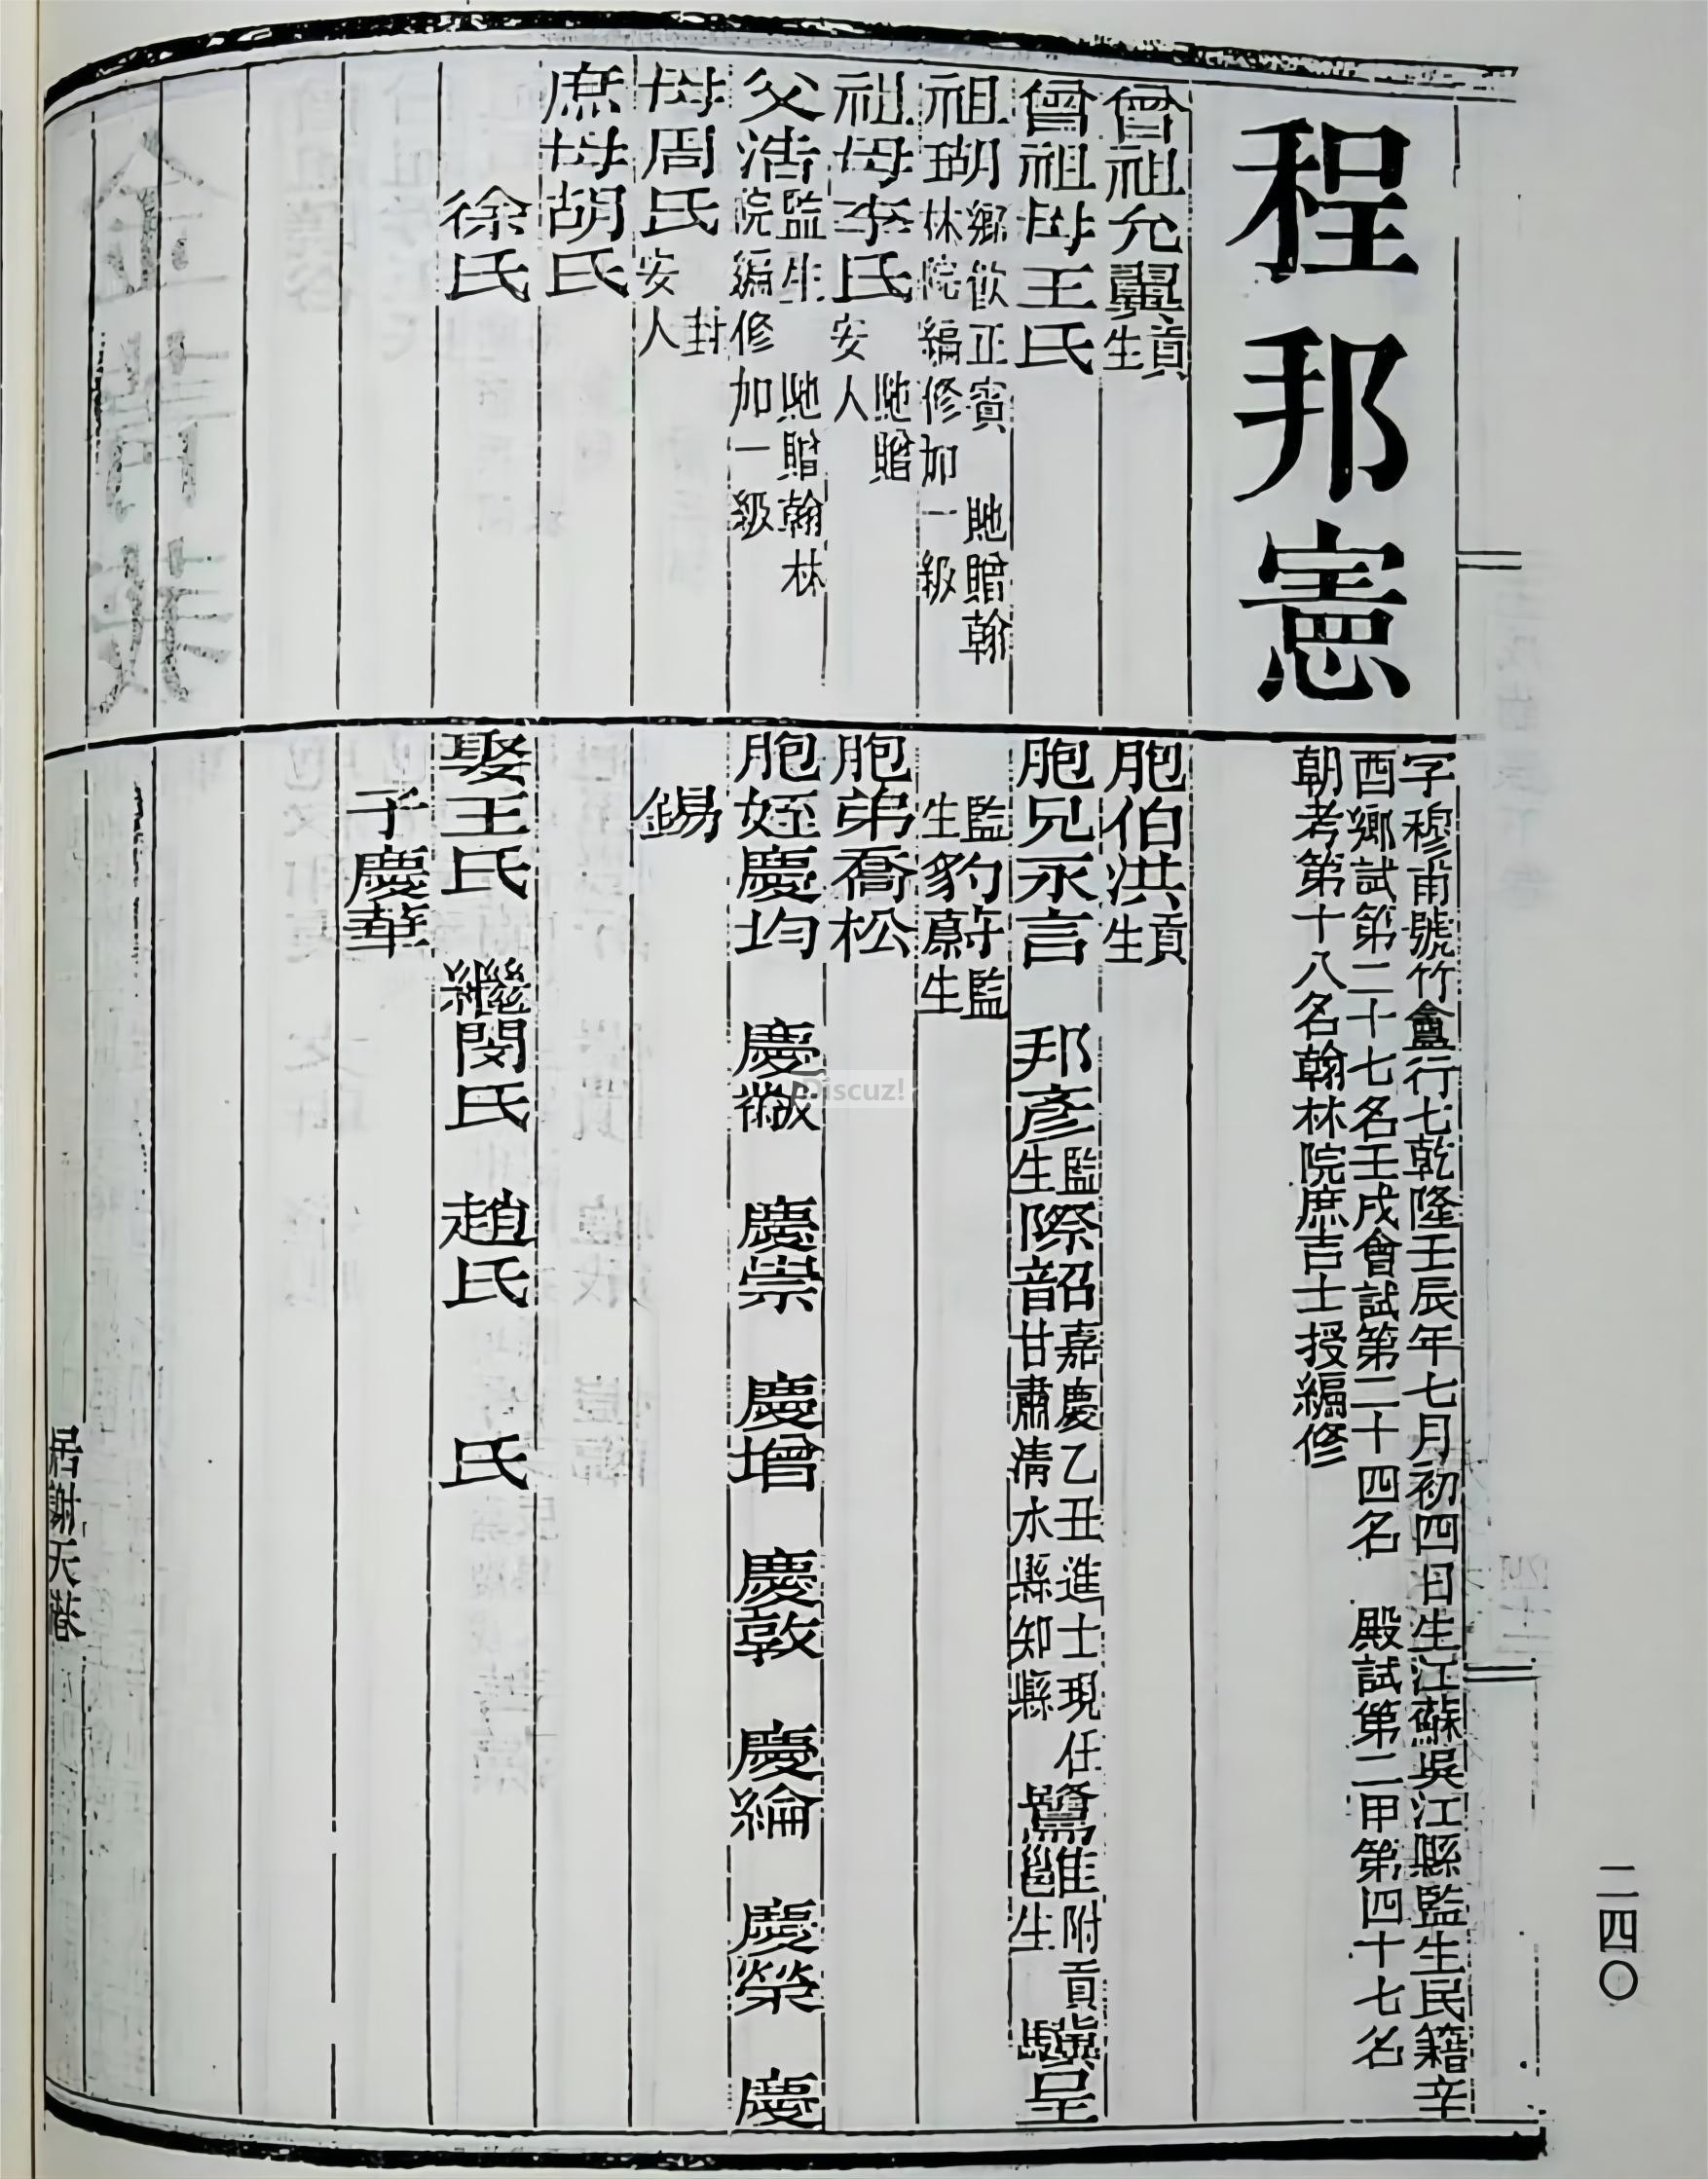 程邦憲
字穆甫號竹盦行七乾隆壬辰年七月初四日生江蘇吳江縣監生民籍辛
酉鄉試第二十七名壬戌會試第二十四名 殿試第二甲第四十七名
朝考第十八名翰林院庶吉士授編修
曾祖允翼貢生
曾祖母王氏
祖瑚鄉飲正賓 貤贈翰
林院編修加一級
祖母李氏貤贈
安人
父浩監生 貤贈翰林
院編修加一級
母周氏封
安人
庶母胡氏
徐氏
胞伯洪貢生
胞兄永言 邦彥監生 際韶嘉慶乙丑進士現任
甘肅清水縣知縣 鷺雝附貢生 驥呈
監生 豹蔚監生
胞弟喬松
胞姪慶均 慶徽 慶崇 慶增 慶敦 慶綸 慶榮 慶
錫
娶王氏 繼閔氏 趙氏 氏
子慶華
居謝天港
二四〇
Discuz!